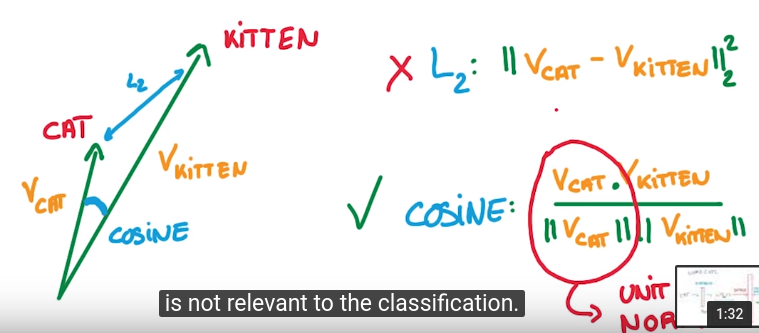 KiTTEN
L2
CAT
VCAT
VKiTTEN
COSiNE
X L2: || VCAT - VKiTTEN ||²₂
✓ COSiNE: VCAT . VKiTTEN
|| VCAT || . || VKiTTEN ||
UNiT
NOR
is not relevant to the classification.
1:32